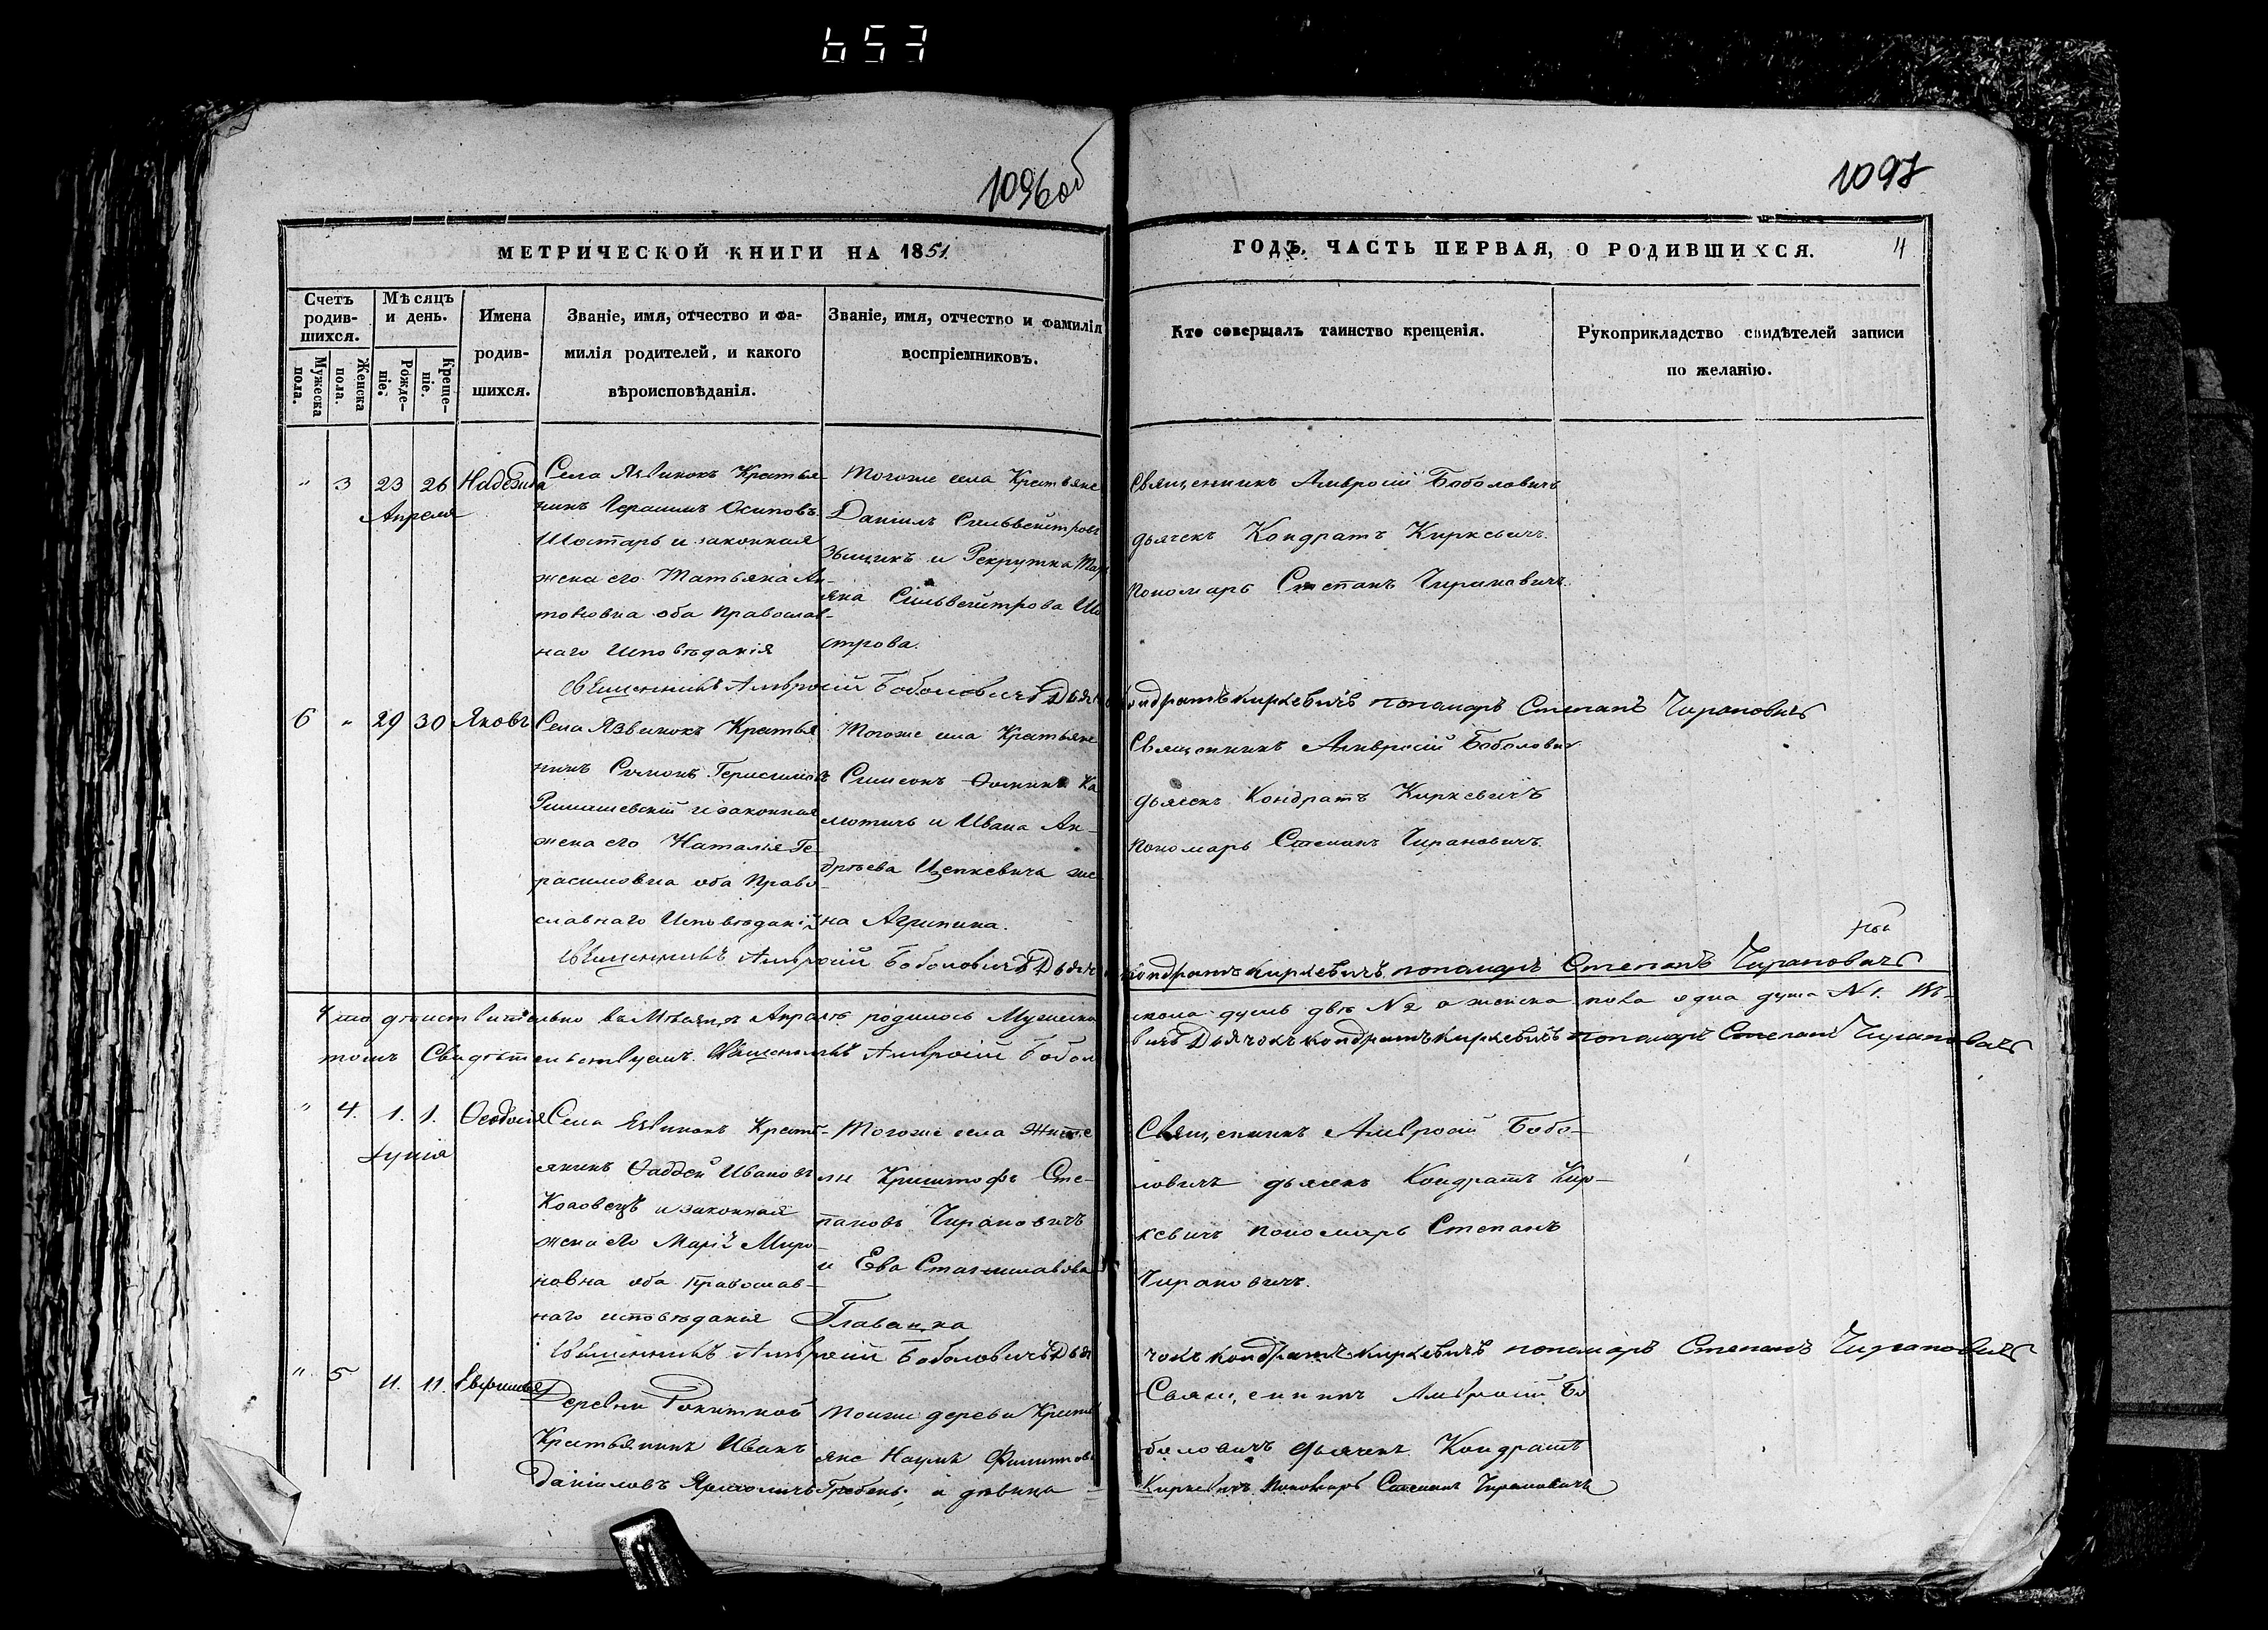 657
1096об
1097
МЕТРИЧЕСКОЙ КНИГИ НА 1851
ГОДЪ, ЧАСТЬ ПЕРВАЯ, О РОДИВШИХСЯ.
4
Счетъ родив-шихся.
Мужеска пола.
Женска пола.
Мѣсяцъ и день.
Рожде-ніе.
Креще-ніе.
Имена
родив-
шихся.
Званіе, имя, отчество и фа-
милія родителей, и какого
вѣроисповѣданія.
Званіе, имя, отчество и фамилія
воспріемниковъ.
Кто совершалъ таинство крещенія.
Рукоприкладство свидѣтелей записи
по желанію.
" 3 23 26 Надежда
Апреля
Села Язвинокъ Крестья-
нинъ Герасимъ Осиповъ
Шостаръ и законная
жена его Татьяна Ан-
тоновна оба Православ-
наго Исповѣданія
Тогоже села Крестьяне
Даніилъ Сильвестровъ
и Рекрутка
Сильвестрова
строва.
Священникъ Амвросій Боболовичъ
дьячекъ Кондратъ Киркевичъ.
пономарь Степанъ Чирановичъ.
Священникъ Амвросій Боболовичъ Дьячокъ Кондратъ Киркевичъ пономаръ Степанъ Чирановичъ
6 " 29 30 Яковъ
Села Язвинокъ Крестья
нинъ Симонъ Герасимовъ
Римашевскій и законная
жена его Наталія Ге-
расимовна оба Право-
славнаго Исповѣданія
Тогоже села Крестьяне
Симеонъ Ѳоминъ Ка
лютичъ и Ивана Ан-
дреева Цепкевича же-
на Агрипина.
Священникъ Амвросій Боболович
дьячекъ Кондратъ Киркевичъ
пономарь Степанъ Чирановичъ.
Священникъ Амвросій Боболовичъ Дьячокъ Кондратъ Киркевичъ пономаръ Степанъ Чирановичъ
Что дѣйствительно въ Мѣсяцѣ Апрѣлѣ родилось Мужеска пола душъ двѣ №2 а женска пола одна душа №1. Въ-
томъ Свидѣтельствуемъ. Священникъ Амвросій Боболовичъ Дьячокъ Кондратъ Киркевичъ пономаръ Степанъ Чирановичъ
" 4. 1. 1. Ѳеодосія
Села Язвинокъ Кресть-
янинъ Ѳаддей Ивановъ
и законная
жена его Марія Миро-
новна оба Православ-
наго исповѣданія
Тогоже села Жите
ли Криштофъ Сте-
пановъ Чирановичъ
и Ева Станиславова
Священникъ Амвросій Бобо-
ловичъ дьячекъ Кондратъ Кир-
кевичъ пономарь Степанъ
Чирановичъ.
Священникъ Амвросій Боболовичъ Дьячокъ Кондратъ Киркевичъ пономаръ Степанъ Чирановичъ
" 5 11. 11.
Деревни
Крестьянинъ Иванъ
Даніиловъ Ярмоличъ
Тоиже деревни Кресть
яне Наумъ Филиповъ
Гребень, и дѣвица
Священникъ Амвросій Бо
боловичъ дьячекъ Кондратъ
Киркевичъ Пономаръ Степанъ Чирановичъ